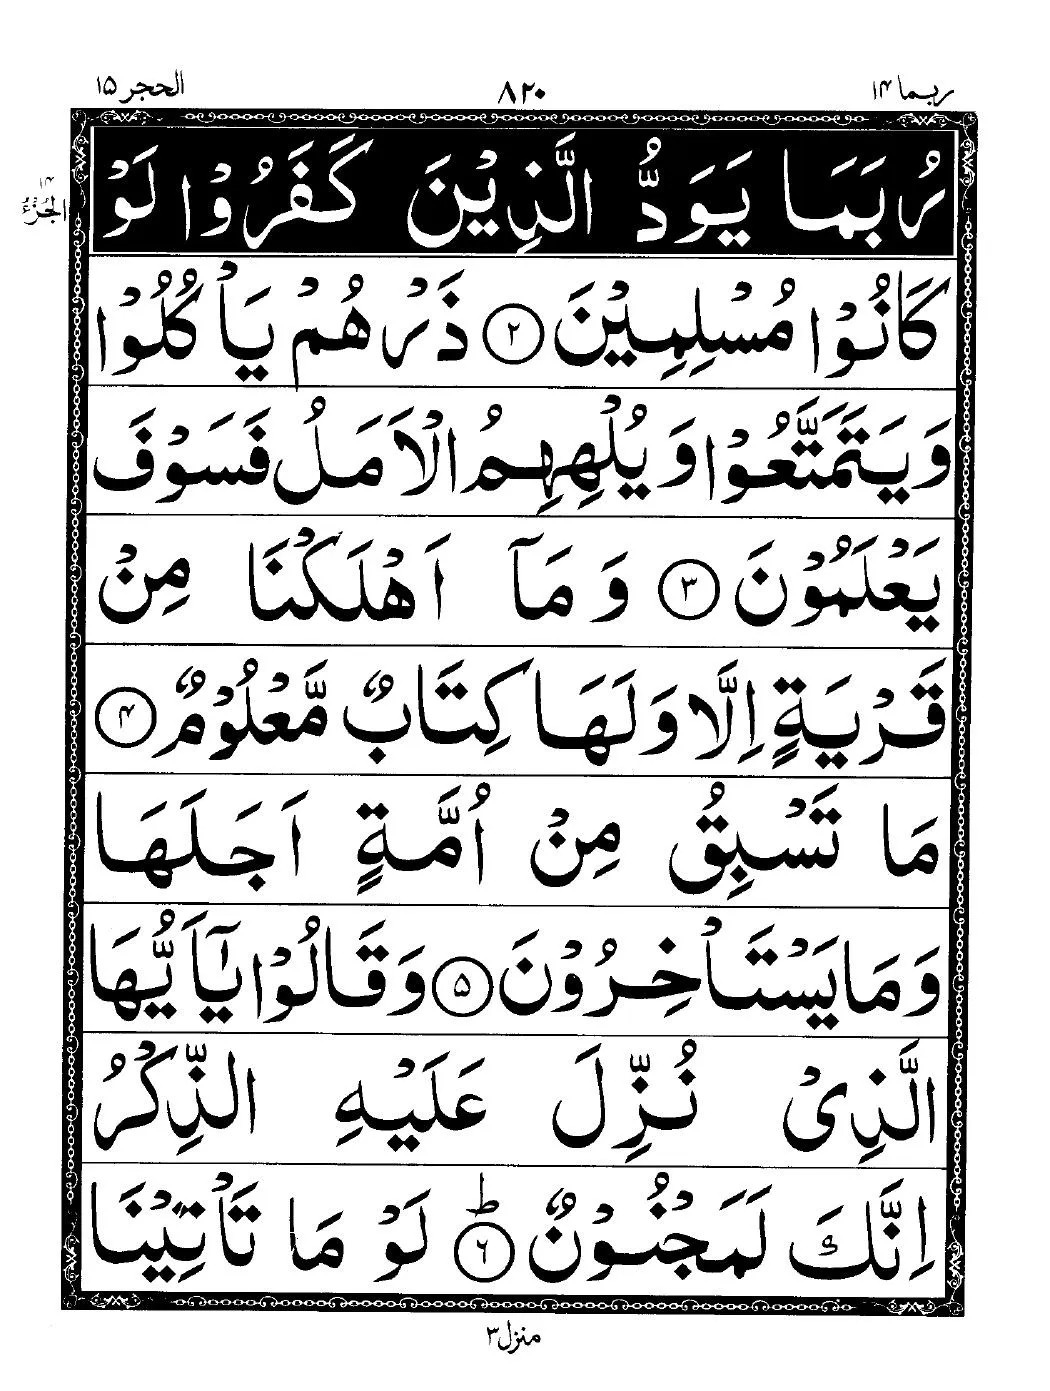 ربما ۱۴
۸۲۰
الحجر ۱۵
الجزء ۱۴
رُبَمَا يَوَدُّ الَّذِيْنَ كَفَرُوْا لَوْ
كَانُوْا مُسْلِمِيْنَ ۲ ذَرْهُمْ يَاْكُلُوْا
وَيَتَمَتَّعُوْا وَيُلْهِهِمُ الْاَمَلُ فَسَوْفَ
يَعْلَمُوْنَ ۳ وَمَآ اَهْلَكْنَا مِنْ
قَرْيَةٍ اِلَّا وَلَهَا كِتَابٌ مَّعْلُوْمٌ ۴
مَا تَسْبِقُ مِنْ اُمَّةٍ اَجَلَهَا
وَمَا يَسْتَاْخِرُوْنَ ۵ وَقَالُوْا يٰٓاَيُّهَا
الَّذِيْ نُزِّلَ عَلَيْهِ الذِّكْرُ
اِنَّكَ لَمَجْنُوْنٌ ۶ ط لَوْ مَا تَاْتِيْنَا
منزل ۳